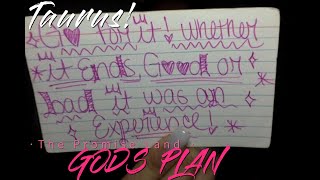 Taurus!
Go for it! whether
it Ends Good or
bad it was an
Experience!
The Promise Land
GODS PLAN